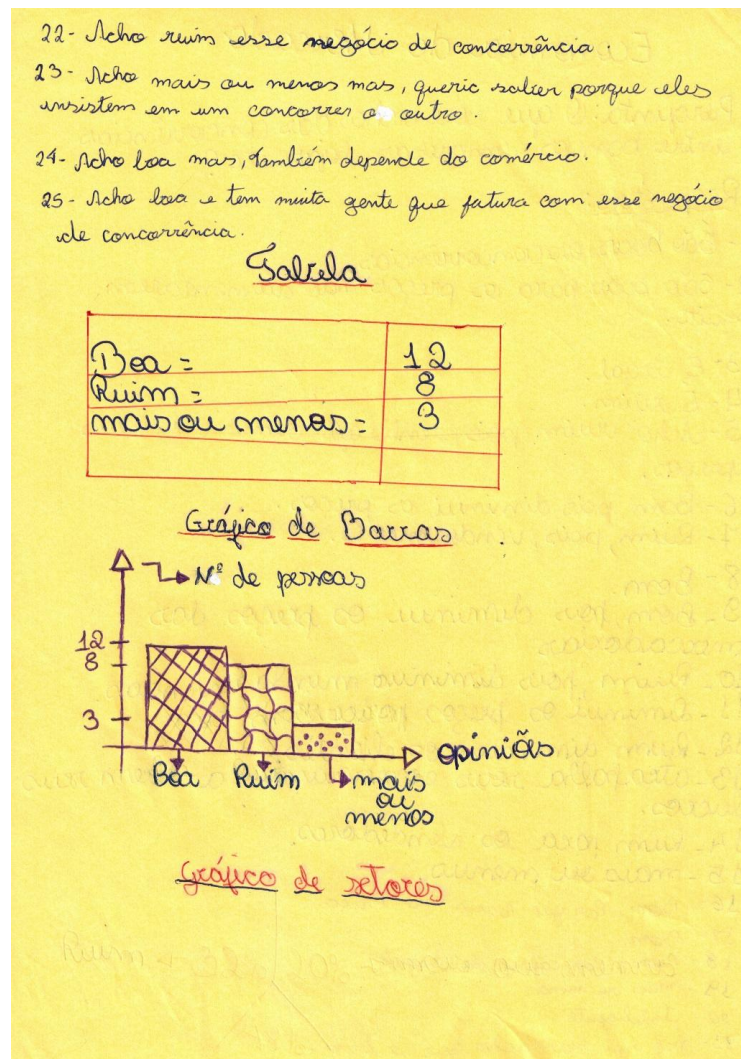 22- Acho ruim esse negócio de concorrência.
23- Acho mais ou menos mas, queria saber porque eles
insistem em um concorrer o outro.
24- Acho boa mas, também depende do comércio.
25- Acho boa e tem muita gente que fatura com esse negócio
de concorrência.
Tabela
Boa = 12
Ruim = 8
mais ou menos = 3
Gráfico de Barras
Nº de pessoas
12
8
3
opiniões
Boa Ruim mais
ou
menos
Gráfico de setores